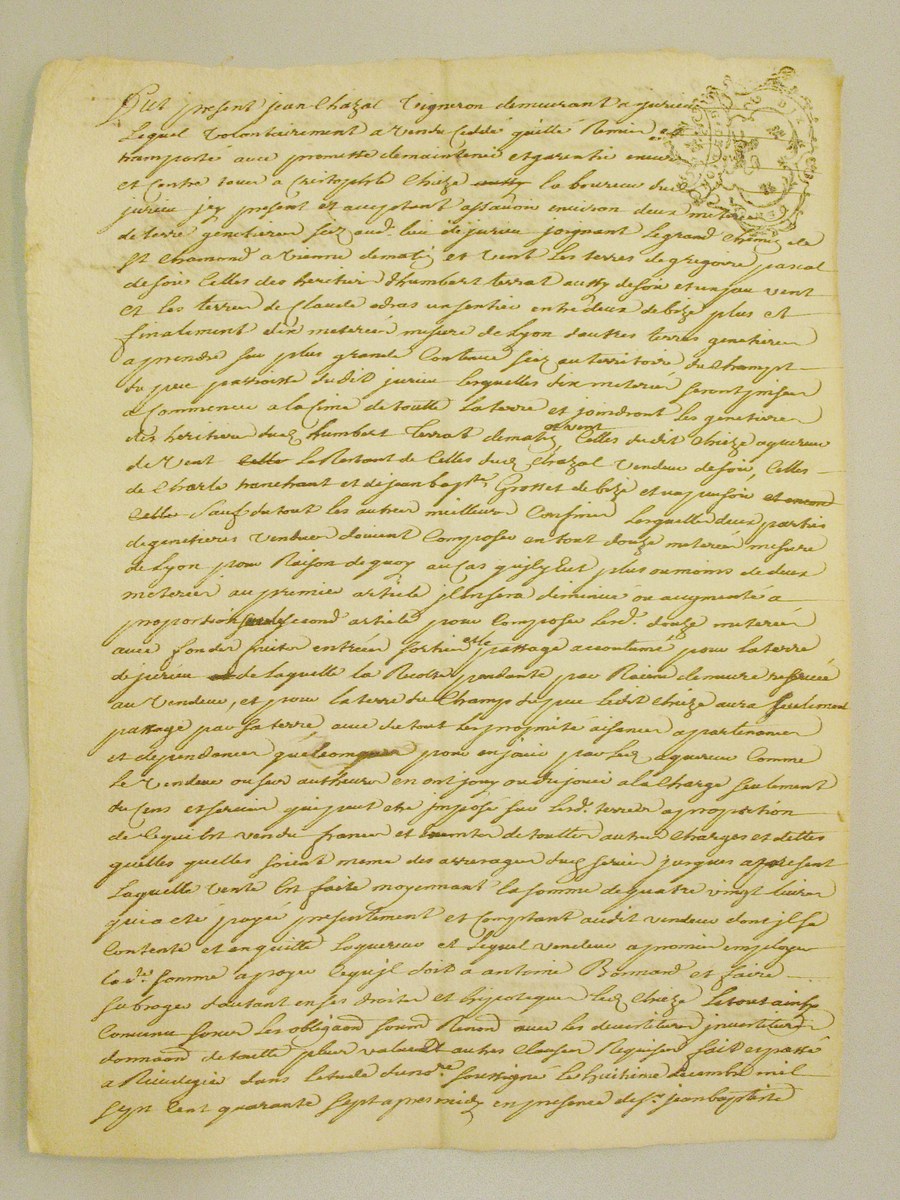 Fut present jean Chazal Vigneron demeurant a jurieu
Lequel Volontairement a Vendu Cedé quitté Remis et
transporté avec promesse de maintenir et garentir envers
et Contre tous a Cristophle Chieze la boureur dud
jurieu jcy present et acceptant assavoir environ deux meterée
de terre genetiere scize aud. lieu de jurieu joignant le grand Chemin de
St Chamond a Vienne de matin et Vent Les terres de gregoire pascal
de soir Celles des heritier d'humbert terrat aussy de soir et un peu vent
et les terres de Claude un sentier entre deux de bize plus et
finalement dix meterée mesure de Lyon d'autres terres genetieres
a prendre sur plus grande Contenue scize au territoire du Champt
du puc parroisse dudit jurieu lesquelles dix meterée seront prises
a Commencer a la sime de toutte La terre et joindront les genetiere
des heritiers dud humbert Terrat de matin, Celles dudit Chieze aquereur
de Vent Celle Le Restant de Celles dud Chazal Vendeur de soir, Celles
de Charle tranchant et de jean bapte Grosset de bize et un peu soir et encore
Celle Sauf de tout les autres meilleurs Confins Lesquelles deux parties
de genetieres Vendues doivent Composer en tout douze meterée mesure
de Lyon pour Raison de quoy au Cas qu'il y Eut plus ou moins de deux
meterée au premier article jl en sera diminué ou augmenté a
proportion second article pour Composer lesd. douze meterée
avec fonds fruits entrées sorties et passage accoutumé pour la terre
de jurieu de laquelle la Recolte pendante par Racine demeure reservée
au Vendeur, et pour la terre du Champ du puc Ledit Chieze aura seulement
passage par sa terre avec de tout les proprieté aisances apartenances
et dependances quelconques pour en jouir par led aquereur Comme
Le Vendeur ou ses autheurs en ont jouy ou du jouir a la Charge seulement
du Cens et servis qui peut etre jmposé sur lesd. terres a proportion
de Ce qui Est vendu francs et de touttes autres Charges et dettes
quelles quelles soient meme des arrerages dud servis jusques a present
Laquelle Vente Est faite moyennant la somme de quatre vingt livres
qui a eté payée presentement et Comptant audit vendeur dont jl se
Contente et en quitte Laquereur et Lequel vendeur a promis employer
lad. somme a payer Ce qu'jl doit a antoine Bonnand et faire
subroger d'autant en ses droits et hipoteques led Chieze Le tout ainsy
Convenu sous les obligaons soumd Renond avec les devestitures jnvestitures
donnaond de toutte plus value et autres Clauses Requises fait et passé
a Rivedegier dans letude du nore. soussigné le huitieme decembre mil
sept Cent quarante sept apres midy en presence de sr. jean baptiste